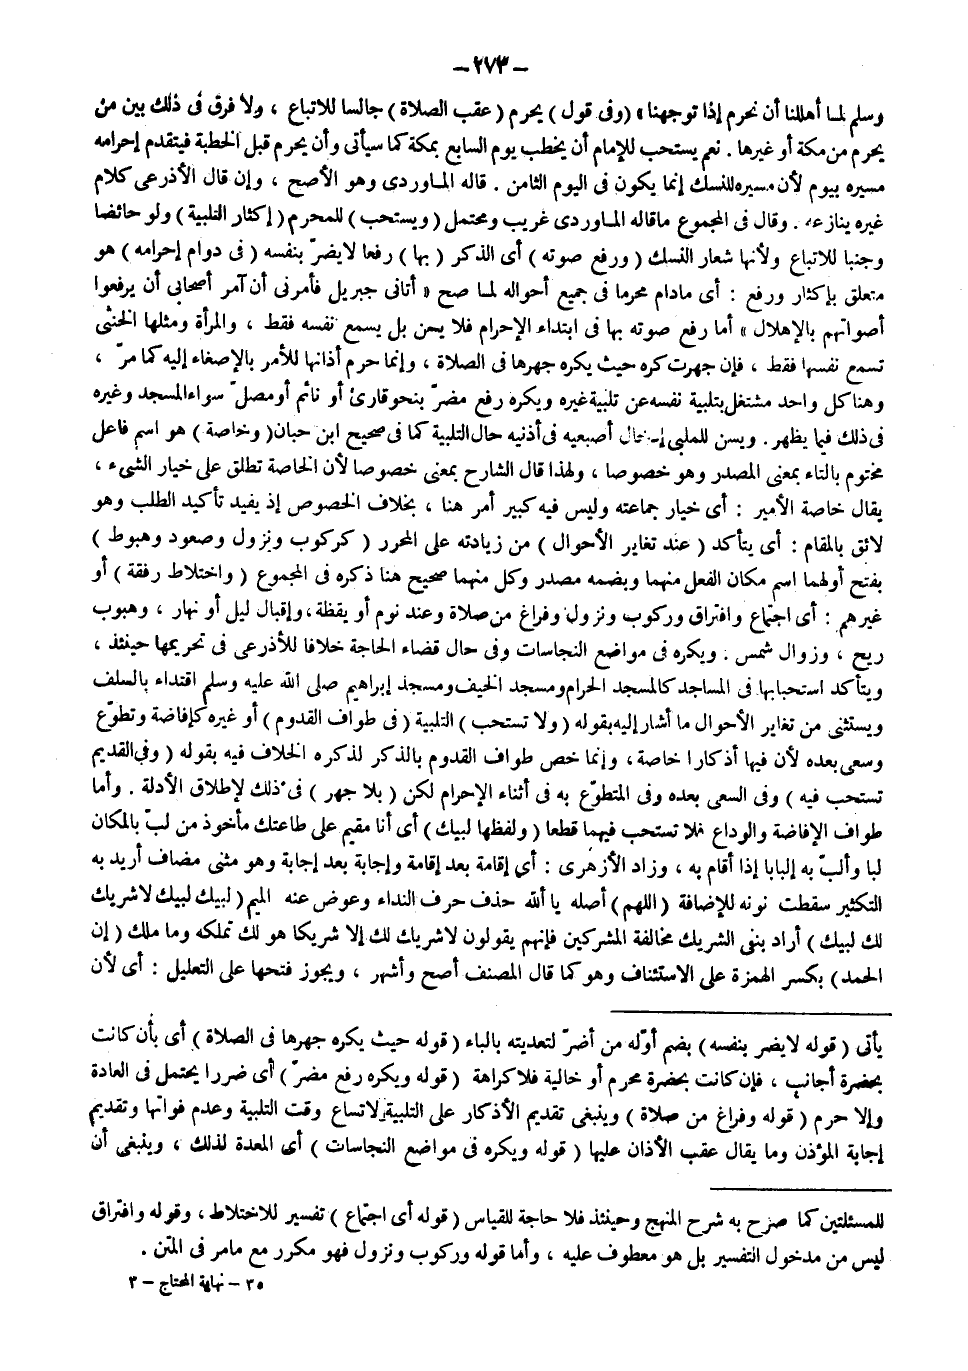 – ٢٧٣ –
وسلم لما أهللنا أن نحرم إذا توجهنا » (وفى قول) يحرم (عقب الصلاة) جالسا للاتباع ، ولا فرق فى ذلك بين من
يحرم من مكة أو غيرها . نعم يستحب للإمام أن يخطب يوم السابع بمكة كما سيأتى وأن يحرم قبل الخطبة فيتقدم إحرامه
مسيره بيوم لأن مسيره للنسك إنما يكون فى اليوم الثامن . قاله الماوردى وهو الأصح ، وإن قال الأذرعى كلام
غيره ينازعه . وقال فى المجموع ماقاله الماوردى غريب ومحتمل (ويستحب) للمحرم (إكثار التلبية) ولو حائضا
وجنبا للاتباع ولأنها شعار النسك (ورفع صوته) أى الذكر (بها) رفعا لايضرّ بنفسه (فى دوام إحرامه) هو
متعلق بإكثار ورفع : أى مادام محرما فى جميع أحواله لما صح « أتانى جبريل فأمرنى أن آمر أصحابى أن يرفعوا
أصواتهم بالإهلال » أما رفع صوته بها فى ابتداء الإحرام فلا يسن بل يسمع نفسه فقط ، والمرأة ومثلها الخنثى
تسمع نفسها فقط ، فإن جهرت كره حيث يكره جهرها فى الصلاة ، وإنما حرم أذانها للأمر بالإصغاء إليه كما مرّ ،
وهنا كل واحد مشتغل بتلبية نفسه عن تلبية غيره ويكره رفع مضرّ بنحو قارئ أو نائم أو مصلّ سواء المسجد وغيره
فى ذلك فيما يظهر . ويسن للملبى إدخال أصبعيه فى أذنيه حال التلبية كما فى صحيح ابن حبان (وخاصة) هو اسم فاعل
مختوم بالتاء بمعنى المصدر وهو خصوصا ، ولهذا قال الشارح بمعنى خصوصا لأن الخاصة تطلق على خيار الشىء ،
يقال خاصة الأمير : أى خيار جماعته وليس فيه كبير أمر هنا ، بخلاف الخصوص إذ يفيد تأكيد الطلب وهو
لائق بالمقام : أى يتأكد (عند تغاير الأحوال) من زيادته على المحرر (كركوب ونزول وصعود وهبوط)
بفتح أولهما اسم مكان الفعل منهما وبضمه مصدر وكل منهما صحيح هنا ذكره فى المجموع (واختلاط رفقة) أو
غيرهم : أى اجتماع وافتراق وركوب ونزول وفراغ من صلاة وعند نوم أو يقظة ، وإقبال ليل أو نهار ، وهبوب
ريح ، وزوال شمس . ويكره فى مواضع النجاسات وفى حال قضاء الحاجة خلافا للأذرعى فى تحريمها حينئذ ،
ويتأكد استحبابها فى المساجد كالمسجد الحرام ومسجد الخيف ومسجد إبراهيم صلى الله عليه وسلم اقتداء بالسلف
ويستثنى من تغاير الأحوال ما أشار إليه بقوله (ولا تستحب) التلبية (فى طواف القدوم) أو غيره كإفاضة وتطوّع
وسعى بعده لأن فيها أذكارا خاصة ، وإنما خص طواف القدوم بالذكر لذكره الخلاف فيه بقوله (وفى القديم
تستحب فيه) وفى السعى بعده وفى المتطوّع به فى أثناء الإحرام لكن (بلا جهر) فى ذلك لإطلاق الأدلة . وأما
طواف الإفاضة والوداع فلا تستحب فيهما قطعا (ولفظها لبيك) أى أنا مقيم على طاعتك مأخوذ من لبّ بالمكان
لبا وألبّ به إلبابا إذا أقام به ، وزاد الأزهرى : أى إقامة بعد إقامة وإجابة بعد إجابة وهو مثنى مضاف أريد به
التكثير سقطت نونه للإضافة (اللهم) أصله يا ألله حذف حرف النداء وعوض عنه الميم (لبيك لبيك لاشريك
لك لبيك) أراد بنفى الشريك مخالفة المشركين فإنهم يقولون لاشريك لك إلا شريكا هو لك تملكه وما ملك (إن
الحمد) بكسر الهمزة على الاستئناف وهو كما قال المصنف أصح وأشهر ، ويجوز فتحها على التعليل : أى لأن
يأتى (قوله لايضر بنفسه) بضم أوّله من أضرّ لتعديته بالباء (قوله حيث يكره جهرها فى الصلاة) أى بأن كانت
بحضرة أجانب ، فإن كانت بحضرة محرم أو خالية فلا كراهة (قوله ويكره رفع مضرّ) أى ضررا يحتمل فى العادة
وإلا حرم (قوله وفراغ من صلاة) وينبغى تقديم الأذكار على التلبية لاتساع وقت التلبية وعدم فواتها وتقديم
إجابة المؤذن وما يقال عقب الأذان عليها (قوله ويكره فى مواضع النجاسات) أى المعدة لذلك ، وينبغى أن
للمسئلتين كما صرّح به شرح المنهج وحينئذ فلا حاجة للقياس (قوله أى اجتماع) تفسير للاختلاط ، وقوله وافتراق
ليس من مدخول التفسير بل هو معطوف عليه ، وأما قوله وركوب ونزول فهو مكرر مع مامر فى المتن .
٣٥ – نهاية المحتاج – ٣